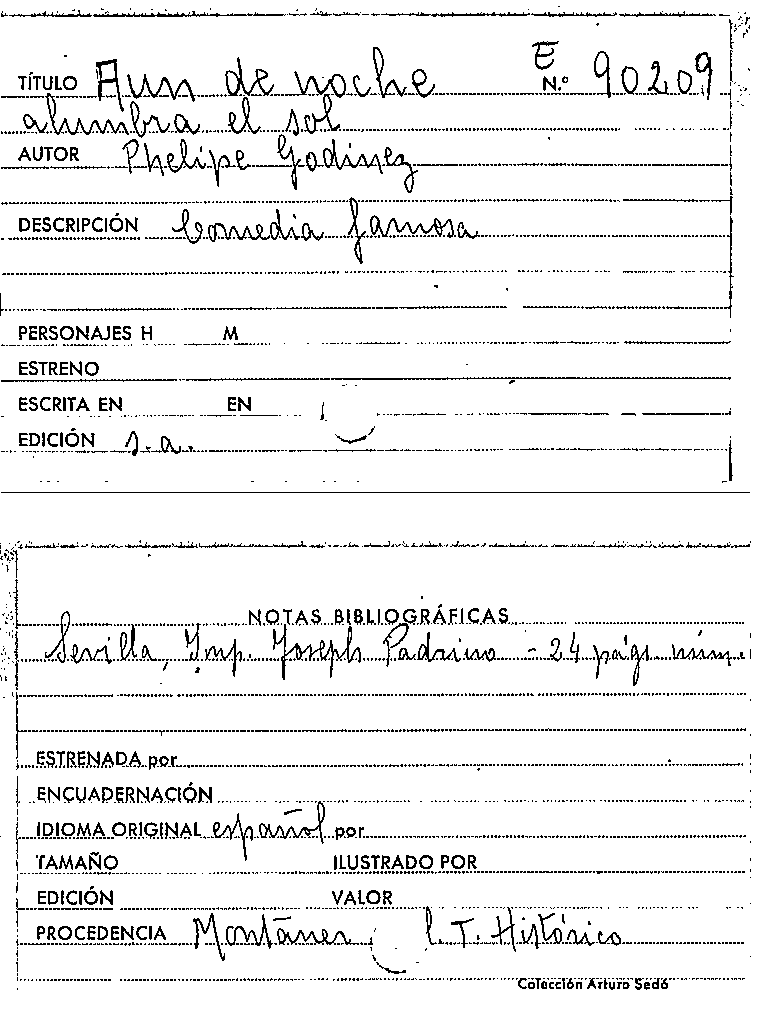 TÍTULO Aun de noche E N.º 90209
alumbra el sol
AUTOR Phelipe Godinez
DESCRIPCIÓN Comedia famosa
PERSONAJES H M
ESTRENO
ESCRITA EN EN
EDICIÓN s.a.
NOTAS BIBLIOGRÁFICAS
Sevilla, Imp. Joseph Padrino - 24 págs. núm.
ESTRENADA por
ENCUADERNACIÓN
IDIOMA ORIGINAL español por
TAMAÑO ILUSTRADO POR
EDICIÓN VALOR
PROCEDENCIA Montaner C. T. Histórico
Colección Arturo Sedó